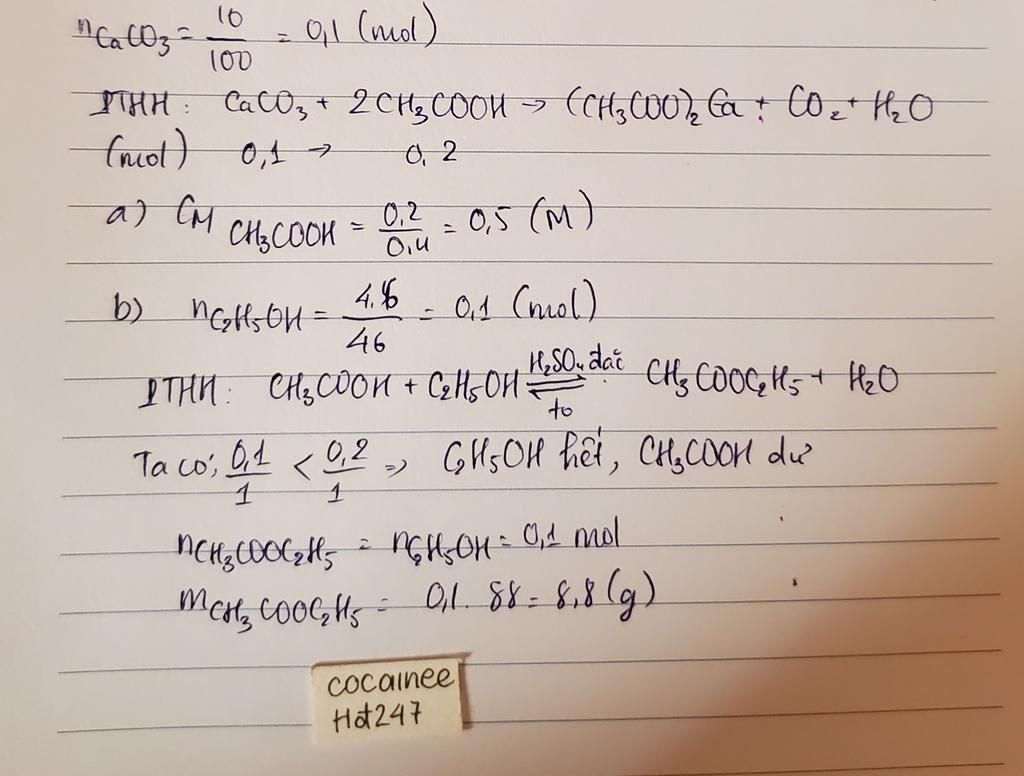 nCaCO₃ = 10/100 = 0,1 (mol)
PTHH: CaCO₃ + 2CH₃COOH → (CH₃COO)₂Ca + CO₂ + H₂O
(mol) 0,1 → 0,2
a) CM CH₃COOH = 0,2/0,4 = 0,5 (M)
b) nC₂H₅OH = 4,6/46 = 0,1 (mol)
PTHH: CH₃COOH + C₂H₅OH ⇌ (H₂SO₄ đặc, to) CH₃COOC₂H₅ + H₂O
Ta có: 0,1/1 < 0,2/1 => C₂H₅OH hết, CH₃COOH dư
nCH₃COOC₂H₅ = nC₂H₅OH = 0,1 mol
mCH₃COOC₂H₅ = 0,1. 88 = 8,8 (g)
cocainee
Hot247